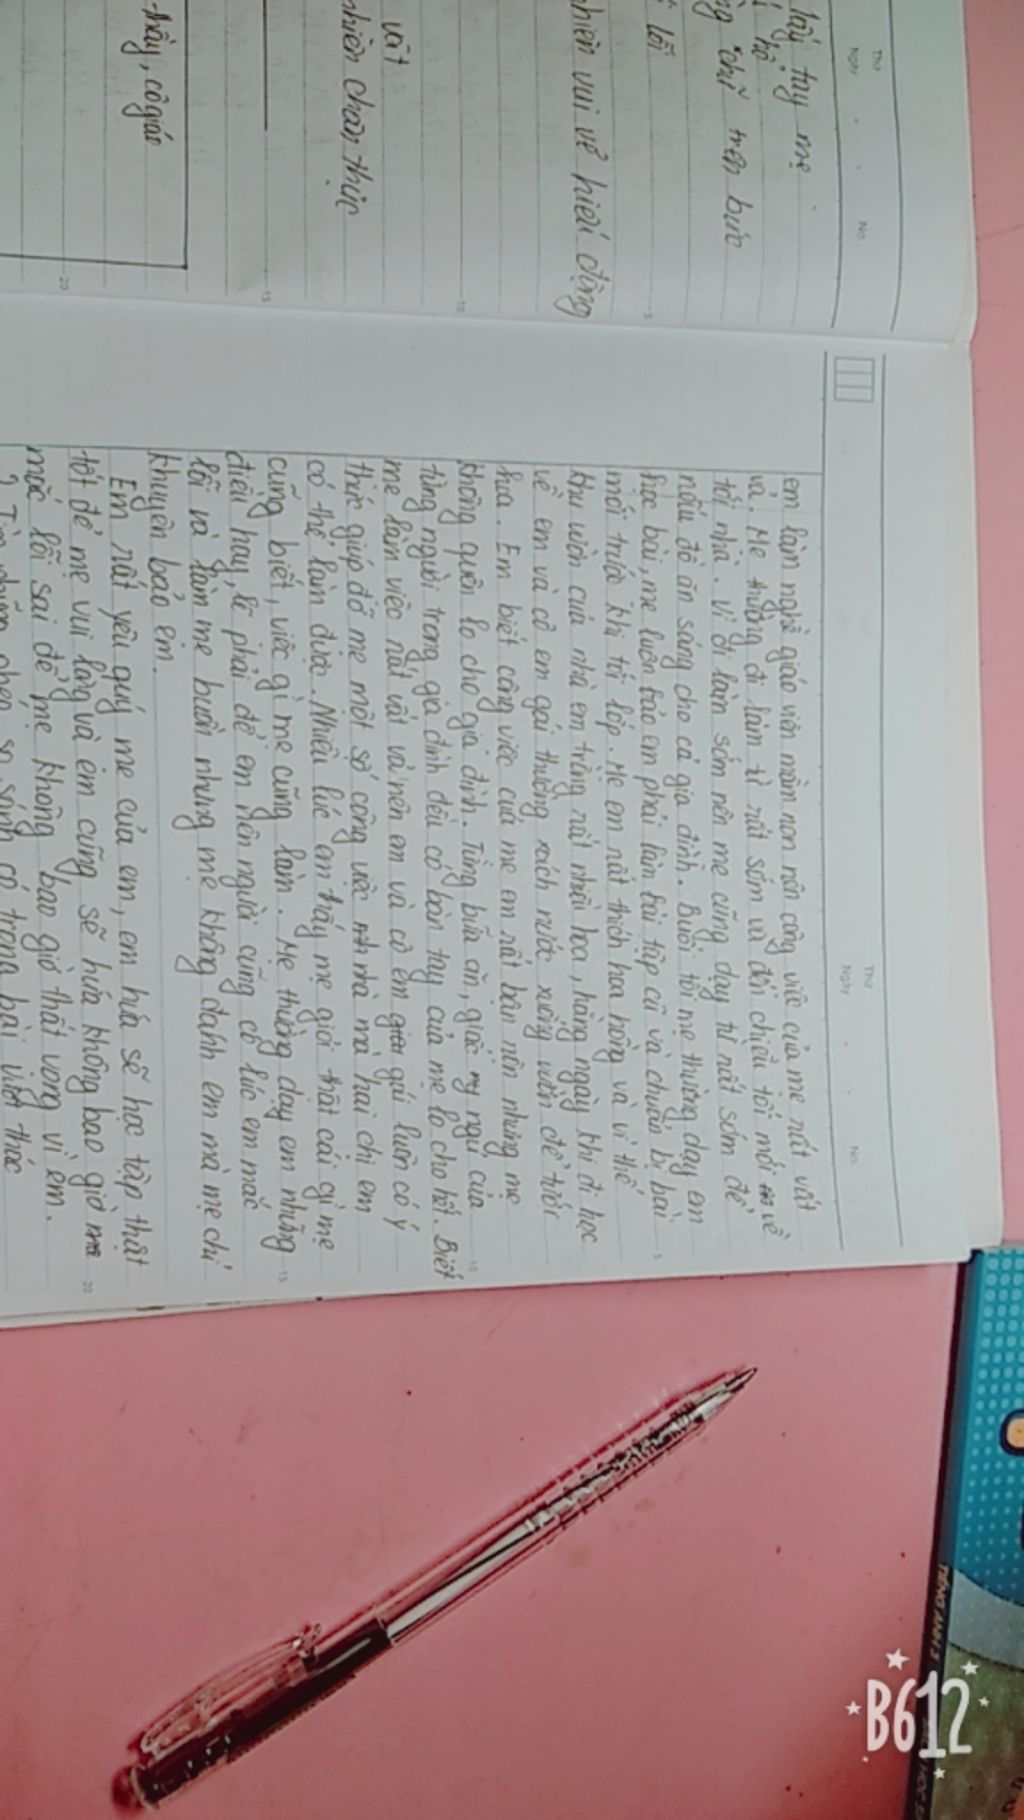 lấy tay mẹ
hộ
chữ trên bức
lỗi
nhiên vui vẻ hiếu động
vật
nhiên chân thực
thầy, cô giáo
Thứ
Ngày
No.
5
10
15
20
Thứ
Ngày
No.
em làm nghề giáo viên mầm non nên công việc của mẹ rất vất
vả. Mẹ thường đi làm từ rất sớm và đến chiều tối mới về
tới nhà. Vì đi làm sớm nên mẹ cũng dạy từ rất sớm để
nấu đồ ăn sáng cho cả gia đình. Buổi tối mẹ thường dạy em
học bài, mẹ luôn bảo em phải làm bài tập cũ và chuẩn bị bài
mới trước khi tới lớp. Mẹ em rất thích hoa hồng và vì thế
khu vườn của nhà em trồng rất nhiều hoa, hàng ngày khi đi học
về em và cô em gái thường xách nước xuống vườn để tưới
hoa. Em biết công việc của mẹ em rất bận nên nhưng mẹ
không quên lo cho gia đình. Từng bữa ăn, giấc ngủ của
từng người trong gia đình đều có bàn tay của mẹ lo cho hết. Biết
mẹ làm việc rất vất vả nên em và cô em gái luôn có ý
thức giúp đỡ mẹ một số công việc nhà mà hai chị em
có thể làm được. Nhiều lúc em thấy mẹ giỏi thật cái gì mẹ
cũng biết, việc gì mẹ cũng làm. Mẹ thường dạy em những
điều hay, lẽ phải để em nên người cũng có lúc em mắc
lỗi và làm mẹ buồn nhưng mẹ không đánh em mà mẹ chỉ
khuyên bảo em.
Em rất yêu quý mẹ của em, em hứa sẽ học tập thật
tốt để mẹ vui lòng và em cũng sẽ hứa không bao giờ
mắc lỗi sai để mẹ không bao giờ thất vọng vì em.
? Tìm những phép so sánh có trong bài viết
5
10
15
20
TIẾNG ANH
B612